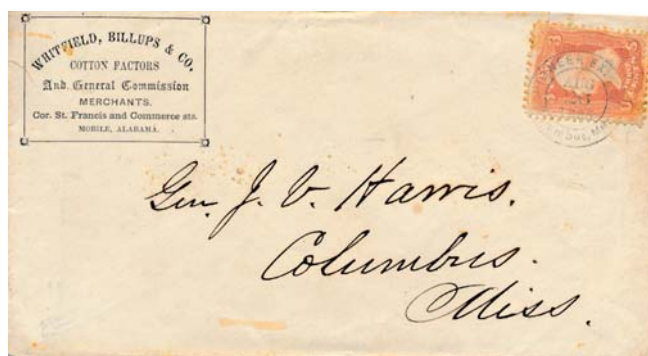 WHITFIELD, BILLUPS & CO.
COTTON FACTORS
And General Commission
MERCHANTS.
Cor. St. Francis and Commerce sts.
MOBILE, ALABAMA.
Gen. J. V. Harris.
Columbus.
Miss.